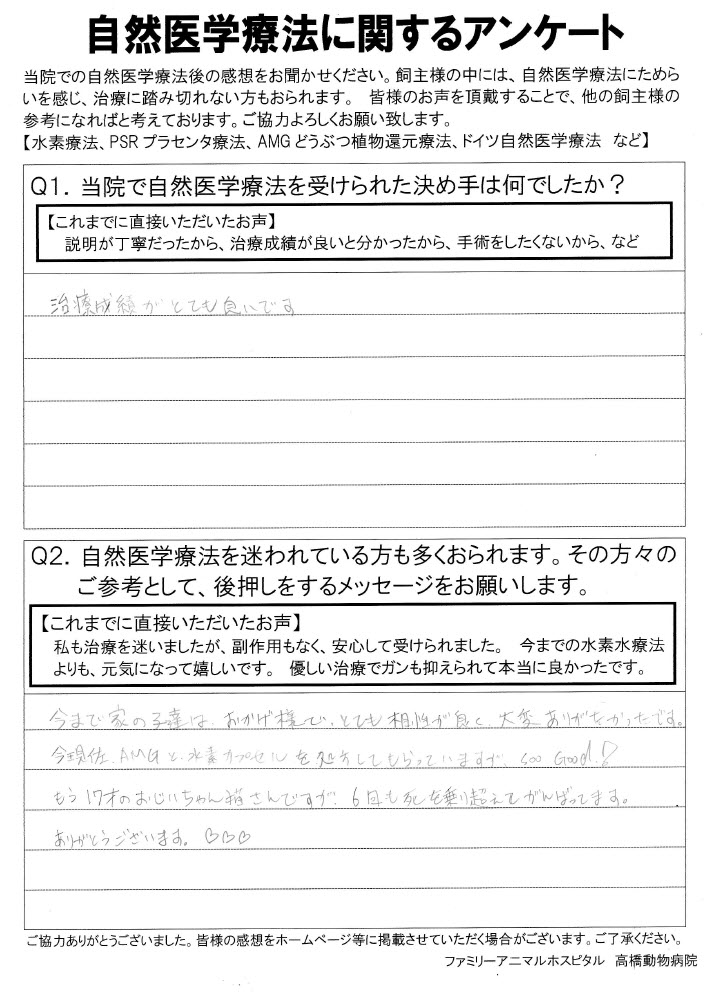 自然医学療法に関するアンケート
当院での自然医学療法後の感想をお聞かせください。飼主様の中には、自然医学療法にためら
いを感じ、治療に踏み切れない方もおられます。 皆様のお声を頂戴することで、他の飼主様の
参考になればと考えております。ご協力よろしくお願い致します。
【水素療法、PSRプラセンタ療法、AMGどうぶつ植物還元療法、ドイツ自然医学療法 など】
Q1. 当院で自然医学療法を受けられた決め手は何でしたか？
【これまでに直接いただいたお声】
説明が丁寧だったから、治療成績が良いと分かったから、手術をしたくないから、など
治療成績がとても良いです
Q2. 自然医学療法を迷われている方も多くおられます。その方々の
ご参考として、後押しをするメッセージをお願いします。
【これまでに直接いただいたお声】
私も治療を迷いましたが、副作用もなく、安心して受けられました。 今までの水素水療法
よりも、元気になって嬉しいです。 優しい治療でガンも抑えられて本当に良かったです。
今まで家の子達は、おかげ様で、とても相性が良く、大変ありがたかったです。
今現在、AMGと、水素カプセルを処方してもらっていますが、Soo Good!
もう17才のおじいちゃん猫さんですが、6回も死を乗り超えてがんばってます。
ありがとうございます。♡♡♡
ご協力ありがとうございました。皆様の感想をホームページ等に掲載させていただく場合がございます。ご了承ください。
ファミリーアニマルホスピタル 高橋動物病院